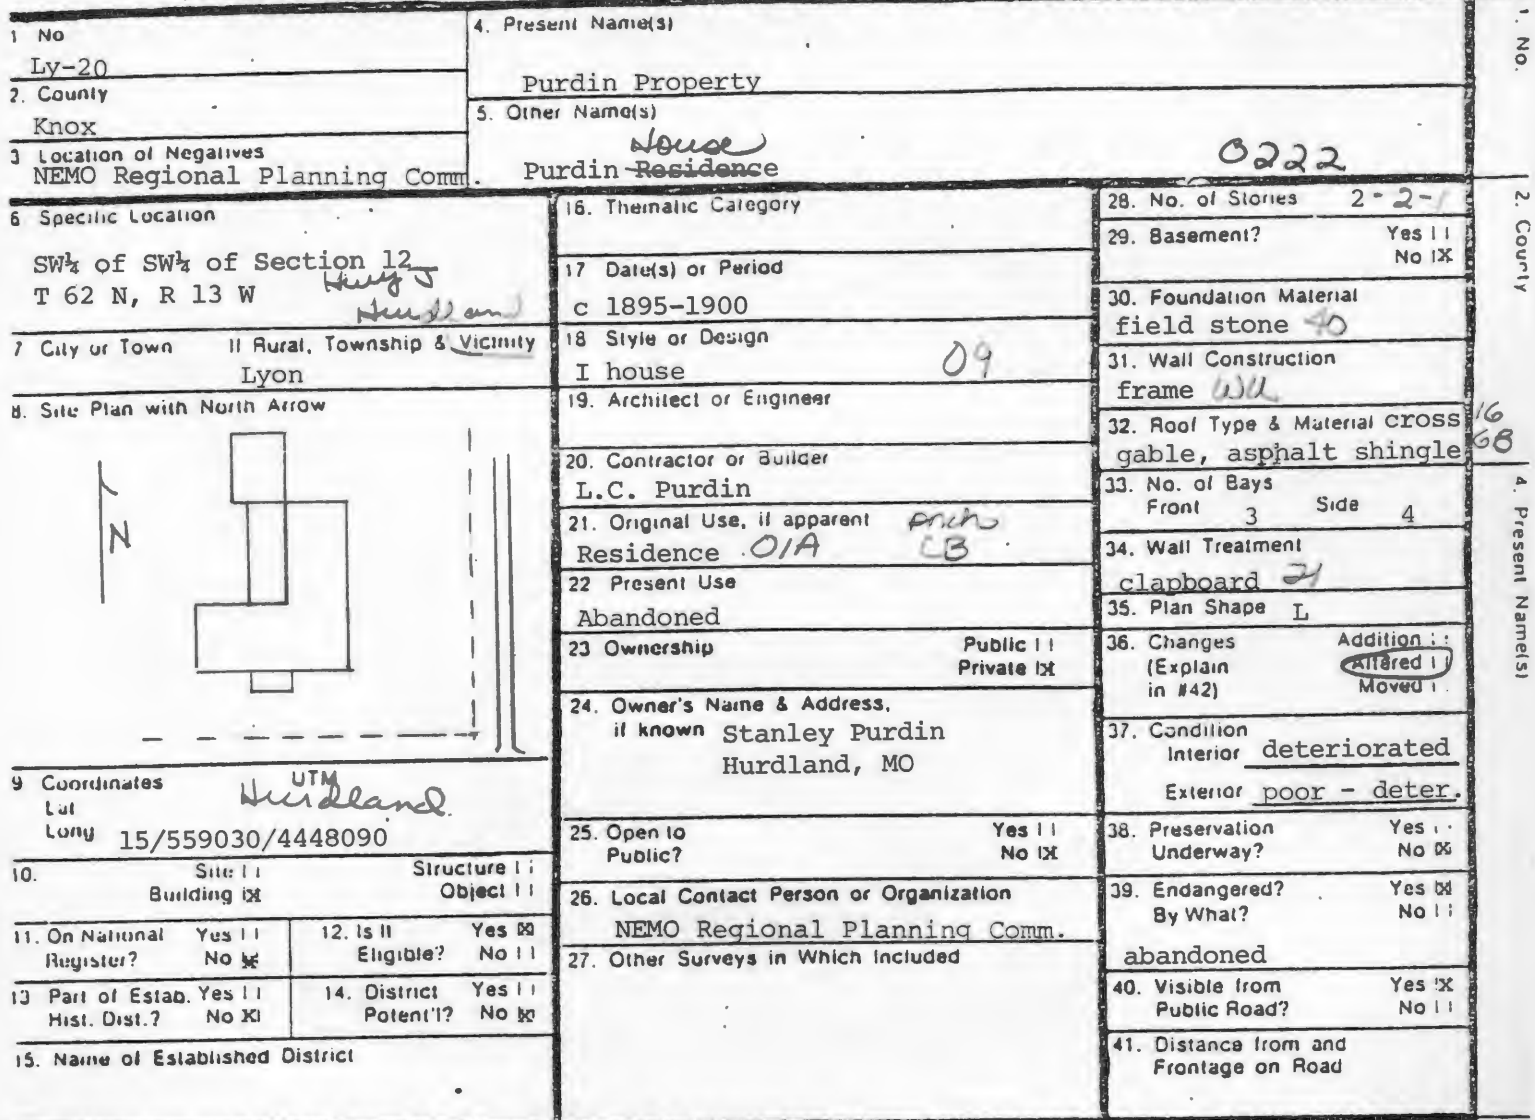 1 No
Ly-20
2. County
Knox
3 Location of Negatives
NEMO Regional Planning Comm.
4. Present Name(s)
Purdin Property
5. Other Name(s)
House
Purdin Residence
0222
6 Specific Location
SW¼ of SW¼ of Section 12
T 62 N, R 13 W
Hurdland
7 City or Town If Rural, Township & Vicinity
Lyon
8. Site Plan with North Arrow
N
9 Coordinates UTM
Lat
Long
Hurdland
15/559030/4448090
10. Site Structure
Building X Object
11. On National Yes
Register? No X
12. Is It Yes X
Eligible? No
13 Part of Estab. Yes
Hist. Dist.? No X
14. District Yes
Potent'l? No X
15. Name of Established District
16. Thematic Category
17 Date(s) or Period
c 1895-1900
18 Style or Design
I house 09
19. Architect or Engineer
20. Contractor or Builder
L.C. Purdin
21. Original Use, if apparent
Residence 01A CB
22 Present Use
Abandoned
23 Ownership Public
Private X
24. Owner's Name & Address,
if known Stanley Purdin
Hurdland, MO
25. Open to Yes
Public? No X
26. Local Contact Person or Organization
NEMO Regional Planning Comm.
27. Other Surveys in Which Included
28. No. of Stories 2-2-1
29. Basement? Yes
No X
30. Foundation Material
field stone 40
31. Wall Construction
frame
32. Roof Type & Material cross 16
gable, asphalt shingle 68
33. No. of Bays
Front 3 Side 4
34. Wall Treatment
clapboard 21
35. Plan Shape L
36. Changes Addition
(Explain Altered
in #42) Moved
37. Condition
Interior deteriorated
Exterior poor - deter.
38. Preservation Yes
Underway? No X
39. Endangered? Yes X
By What? No
abandoned
40. Visible from Yes X
Public Road? No
41. Distance from and
Frontage on Road
1. No.
2. County
4. Present Name(s)